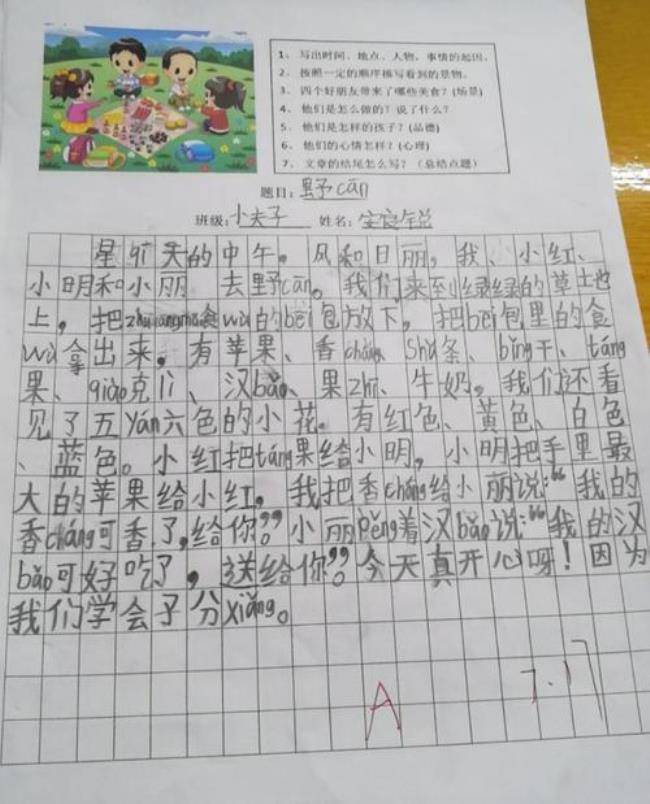 1、写出时间、地点、人物，事情的起因。
2、按照一定的顺序描写看到的景物。
3、四个好朋友带来了哪些美食？(场景)
4、他们是怎么做的？说了什么？
5、他们是怎样的孩子？(品德)
6、他们的心情怎样？(心理)
7、文章的结尾怎么写？（总结点题）
题目：野cān
班级：小夫子 姓名：
星qī天的中午。风和日丽，我、小红、
小明和小丽去野cān。我们来到绿绿的草地
上，把zhuāngmǎn食wù的bēi包放下，把bēi包里的食
wù拿出来。有苹果、香cháng、Shǔ条、bǐng干、táng
果、qiǎo克lì、汉bǎo、果zhī、牛奶。我们还看
见了五yán六色的小花。有红色、黄色、白色
、蓝色。小红把táng果给小明，小明把手里最
大的苹果给小红。我把香cháng给小丽说：“我的
香cháng可香了，给你”。小丽pěng着汉bǎo说：“我的汉
bǎo可好吃了，送给你”。今天真开心呀！因为
我们学会了分xiǎng。
A 7.17